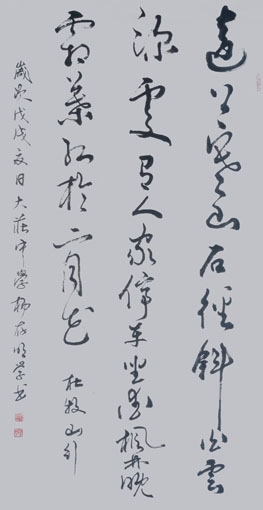 遠上寒山石徑斜白雲
深處有人家停車坐愛楓林晚
霜葉紅於二月花 杜牧山行
歲次戊戌夏日大莊中學楊